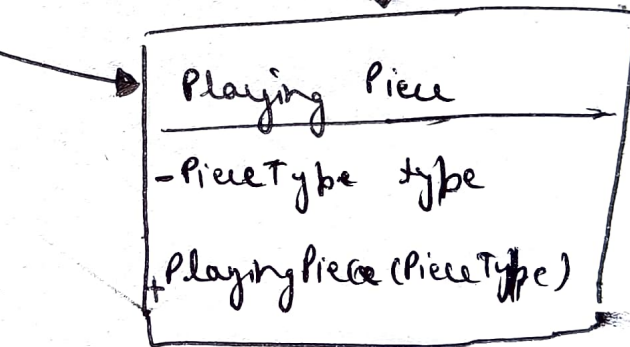 Playing Piece
- PieceType type
+ PlayingPiece (PieceType)